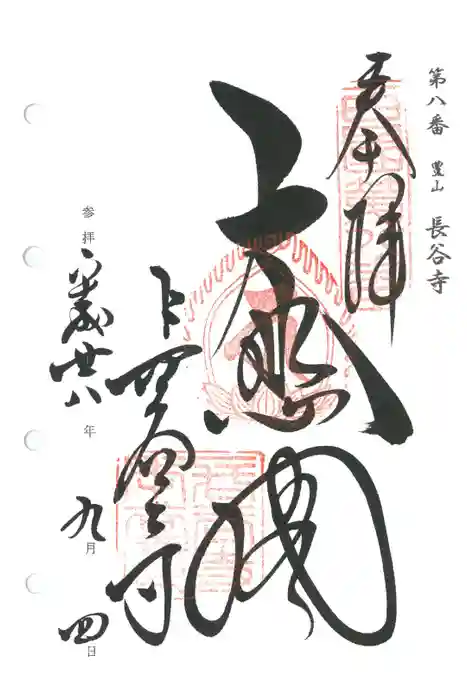 第八番 豊山 長谷寺
奉拝
大悲閣
長谷寺
参拝 平成廿八年 九月 四日